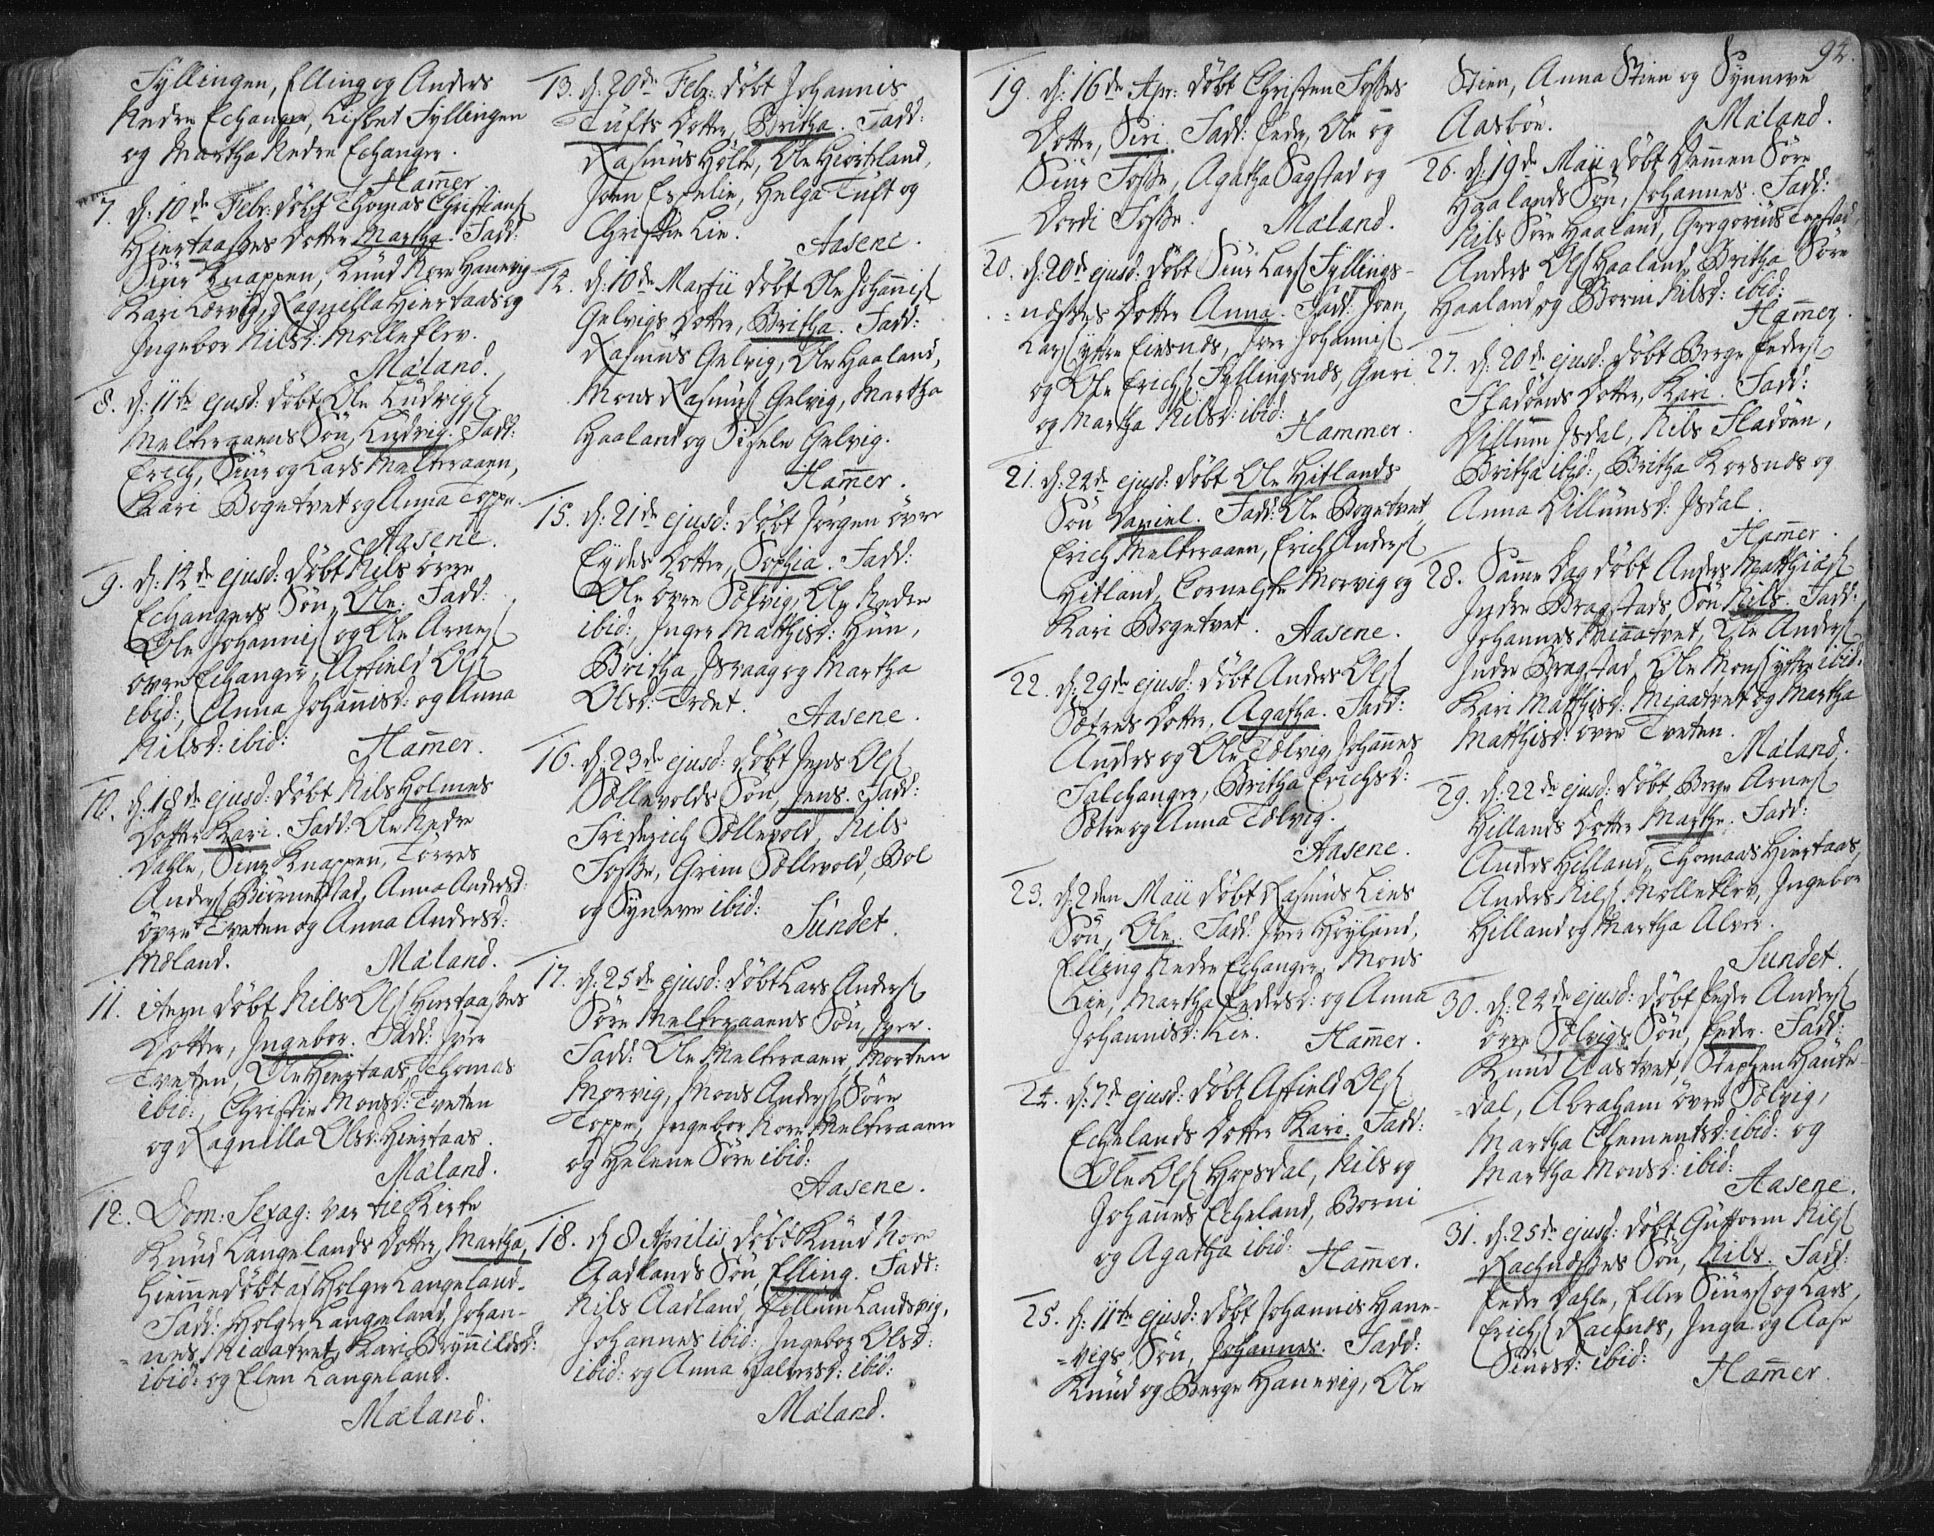 Fyllingen, Elling og Anders
Nedre Echanger, Lisbet Fyllingen
og Martha Nedre Echanger.
Hammer
7. d: 10de Febr: döbt Thomas Christians
Hiertaasses Dotter Martha. Fadd:
Siur Knappen, Knud Nore Hanevig
Kari Lervig, Ragnilla Hiertaas og
Ingebor Nilsd: Molleklev.
Mæland.
8. d: 11te ejusd: döbt Ole Ludvigs
Melkeraaens Sön, Ludvig. Fadd:
Erich, Siur og Lars Melkeraaen,
Kari Bognetvet og Anna Toppe.
Aasene.
9. d: 14de ejusd: döbt Nils övre
Echangers Sön, Ole. Fadd:
Ole Johannis og Ole Arnes
övre Echanger, Affield Ols
ibid:, Anna Johannisd: og Anna
Nilsd: ibid:
Hammer.
10. d: 18de ejusd: döbt Nils Holmes
Dotter Kari. Fadd: Ole Nedre
Dahle, Siur Knappen, Torres
Anders Biörnestad, Anna Andersd:
övre Tveten og Anna Andersd:
Mæland.
Mæland.
11. item döbt Nils Ols Hiertaasses
Dotter, Ingebor. Fadd: Iver
Tveten, Ole Hiertaas, Thomas
ibid:, Christie Monsd: Tveten
og Ragnilla Olsd: Hiertaas.
Mæland.
12. Dom: Sexag: var til Kirke
Knud Langelands Dotter, Martha,
hiemmedöbt af Holger Langeland.
Fadd: Holger Langeland, Johan-
nes Miaatvet, Kari Brynnildsd:
ibid: og Elen Langeland.
Mæland.
13. d: 20de Febr: döbt Johannis
Tufts Dotter, Britha. Fadd:
Rasmus Holte, Ole Hiortland,
Joen Espelie, Helga Tuft og
Christie Lie.
Aasene.
14. d: 10de Martii döbt Ole Johannis
Gelvigs Dotter, Britha. Fadd:
Rasmus Gelvig, Ole Haaland,
Mons Rasmus Gelvig, Martha
Haaland og Sigele Gelvig.
Hammer.
15. d: 21de ejusd: döbt Jörgen övre
Eydes Dotter, Sophia. Fadd:
Ole övre Sölvig, Ole Nedre
ibid:, Inger Matthisd: Hun,
Britha Isvaag og Martha
Olsd: Trædet.
Aasene.
16. d: 23de ejusd: döbt Jens Ols
Söllevolds Sön, Jens. Fadd:
Friderich Söllevold, Nils
Fosse, Grim Söllevold, Bol
og Syneve ibid:
Sundet.
17. d: 25de ejusd: döbt Lars Anders
Söre Melkeraaens Sön, Iver.
Fadd: Ole Melkeraaen, Morten
Morvig, Mons Anders Söre
Toppe, Ingebor Nore Melkeraaen
og Helene Söre ibid:
Aasene.
18. d 8 Aprilis döbt Knud Nore
Aadlands Sön, Elling. Fadd:
Nils Aadland, Villum Landsvig,
Johannes ibid: Ingebor Olsd:
ibid: og Anna Halversd: ibid:
Mæland.
94.
19. d: 16de Apr: döbt Christen Fosses
Dotter, Siri. Fadd: Peder, Ole og
Siur Fosse, Agatha Sagstad og
Dordi Fosse.
Mæland.
20. d: 20de ejusd: döbt Siur Lars Fyllings-
næsses Dotter Anna. Fadd: Joen
Lars yttre Eiesnæs, Iver Johannis
og Ole Erichs Fyllingsnæs, Guri
og Martha Nilsd: ibid:
Hammer.
21. d: 24de ejusd: döbt Ole Hitlands
Sön Daniel. Fadd: Ole Bognetvet,
Erich Melkeraaen, Erich Anders
Hitland, Cornelste Morvig og
Kari Bognetvet.
Aasene.
22. d: 29de ejusd: döbt Anders Ols
Sotres Dotter, Agatha. Fadd:
Anders og Ole Tælvig, Johannes
Salechanger, Britha Erichsd:
Sotre og Anna Tælvig.
Aasene.
23. d: 2den Maii döbt Rasmus Lies
Sön, Ole. Fadd: Iver Höyland,
Elling Nedre Echanger, Mons
Lie, Martha Pedersd: og Anna
Johannisd: Lie.
Hammer.
24. d: 7de ejusd: döbt Affield Ols
Echelands Dotter Kari. Fadd:
Ole Ols Hopsdal, Nils og
Johannes Echeland, Borni
og Agatha ibid:
Hammer.
25. d: 11te ejusd: döbt Johannis Hane-
vigs Sön, Johannes. Fadd:
Knud og Berge Hanevig, Ole
Stien, Anna Stien og Synneve
Aasböe.
Mæland.
26. d: 19de Maii döbt Hemmen Söre
Haalands Sön, Johannes. Fadd:
Nils Söre Haaland, Gregorius Topstad,
Anders Ols Haaland, Britha Söre
Haaland og Borni Nilsd: ibid:
Hammer.
27. d: 20de ejusd: döbt Berge Peders
Fladöens Dotter, Kari. Fadd:
Villum Isdal, Nils Fladöen,
Britha ibid:, Britha Korsnæs og
Anna Villumsd: Isdal.
Hammer.
28. Samme Dag döbt Anders Matthias
Indre Bragstads Sön Nils. Fadd:
Johannes Miaatvet, Ole Anders
Indre Bragstad, Ole Mons yttre ibid:
Kari Matthisd: Miaatvet og Martha
Matthisd: övre Tveten.
Mæland.
29. d: 22de ejusd: döbt Berge Arnes
Hillands Dotter Marthe. Fadd:
Anders Hilland, Thomas Hiertaas,
Anders Nils Molleklev, Ingebor
Hilland og Martha Alver.
Sundet.
30. d: 24de ejusd: döbt Peder Anders
övre Sölvigs Sön, Peder. Fadd:
Knud Aastvet, Stephen Hauke-
dal, Abraham övre Sölvig,
Martha Clementsd: ibid: og
Martha Monsd: ibid:
Aasene.
31. d: 25de ejusd: döbt Guttorm Nils
Rachnæsses Sön, Nils. Fadd:
Peder Dahle, Eller Siurs og Lars
Erichs Rachnæs, Inga og Aase
Siursd: ibid:
Hammer.